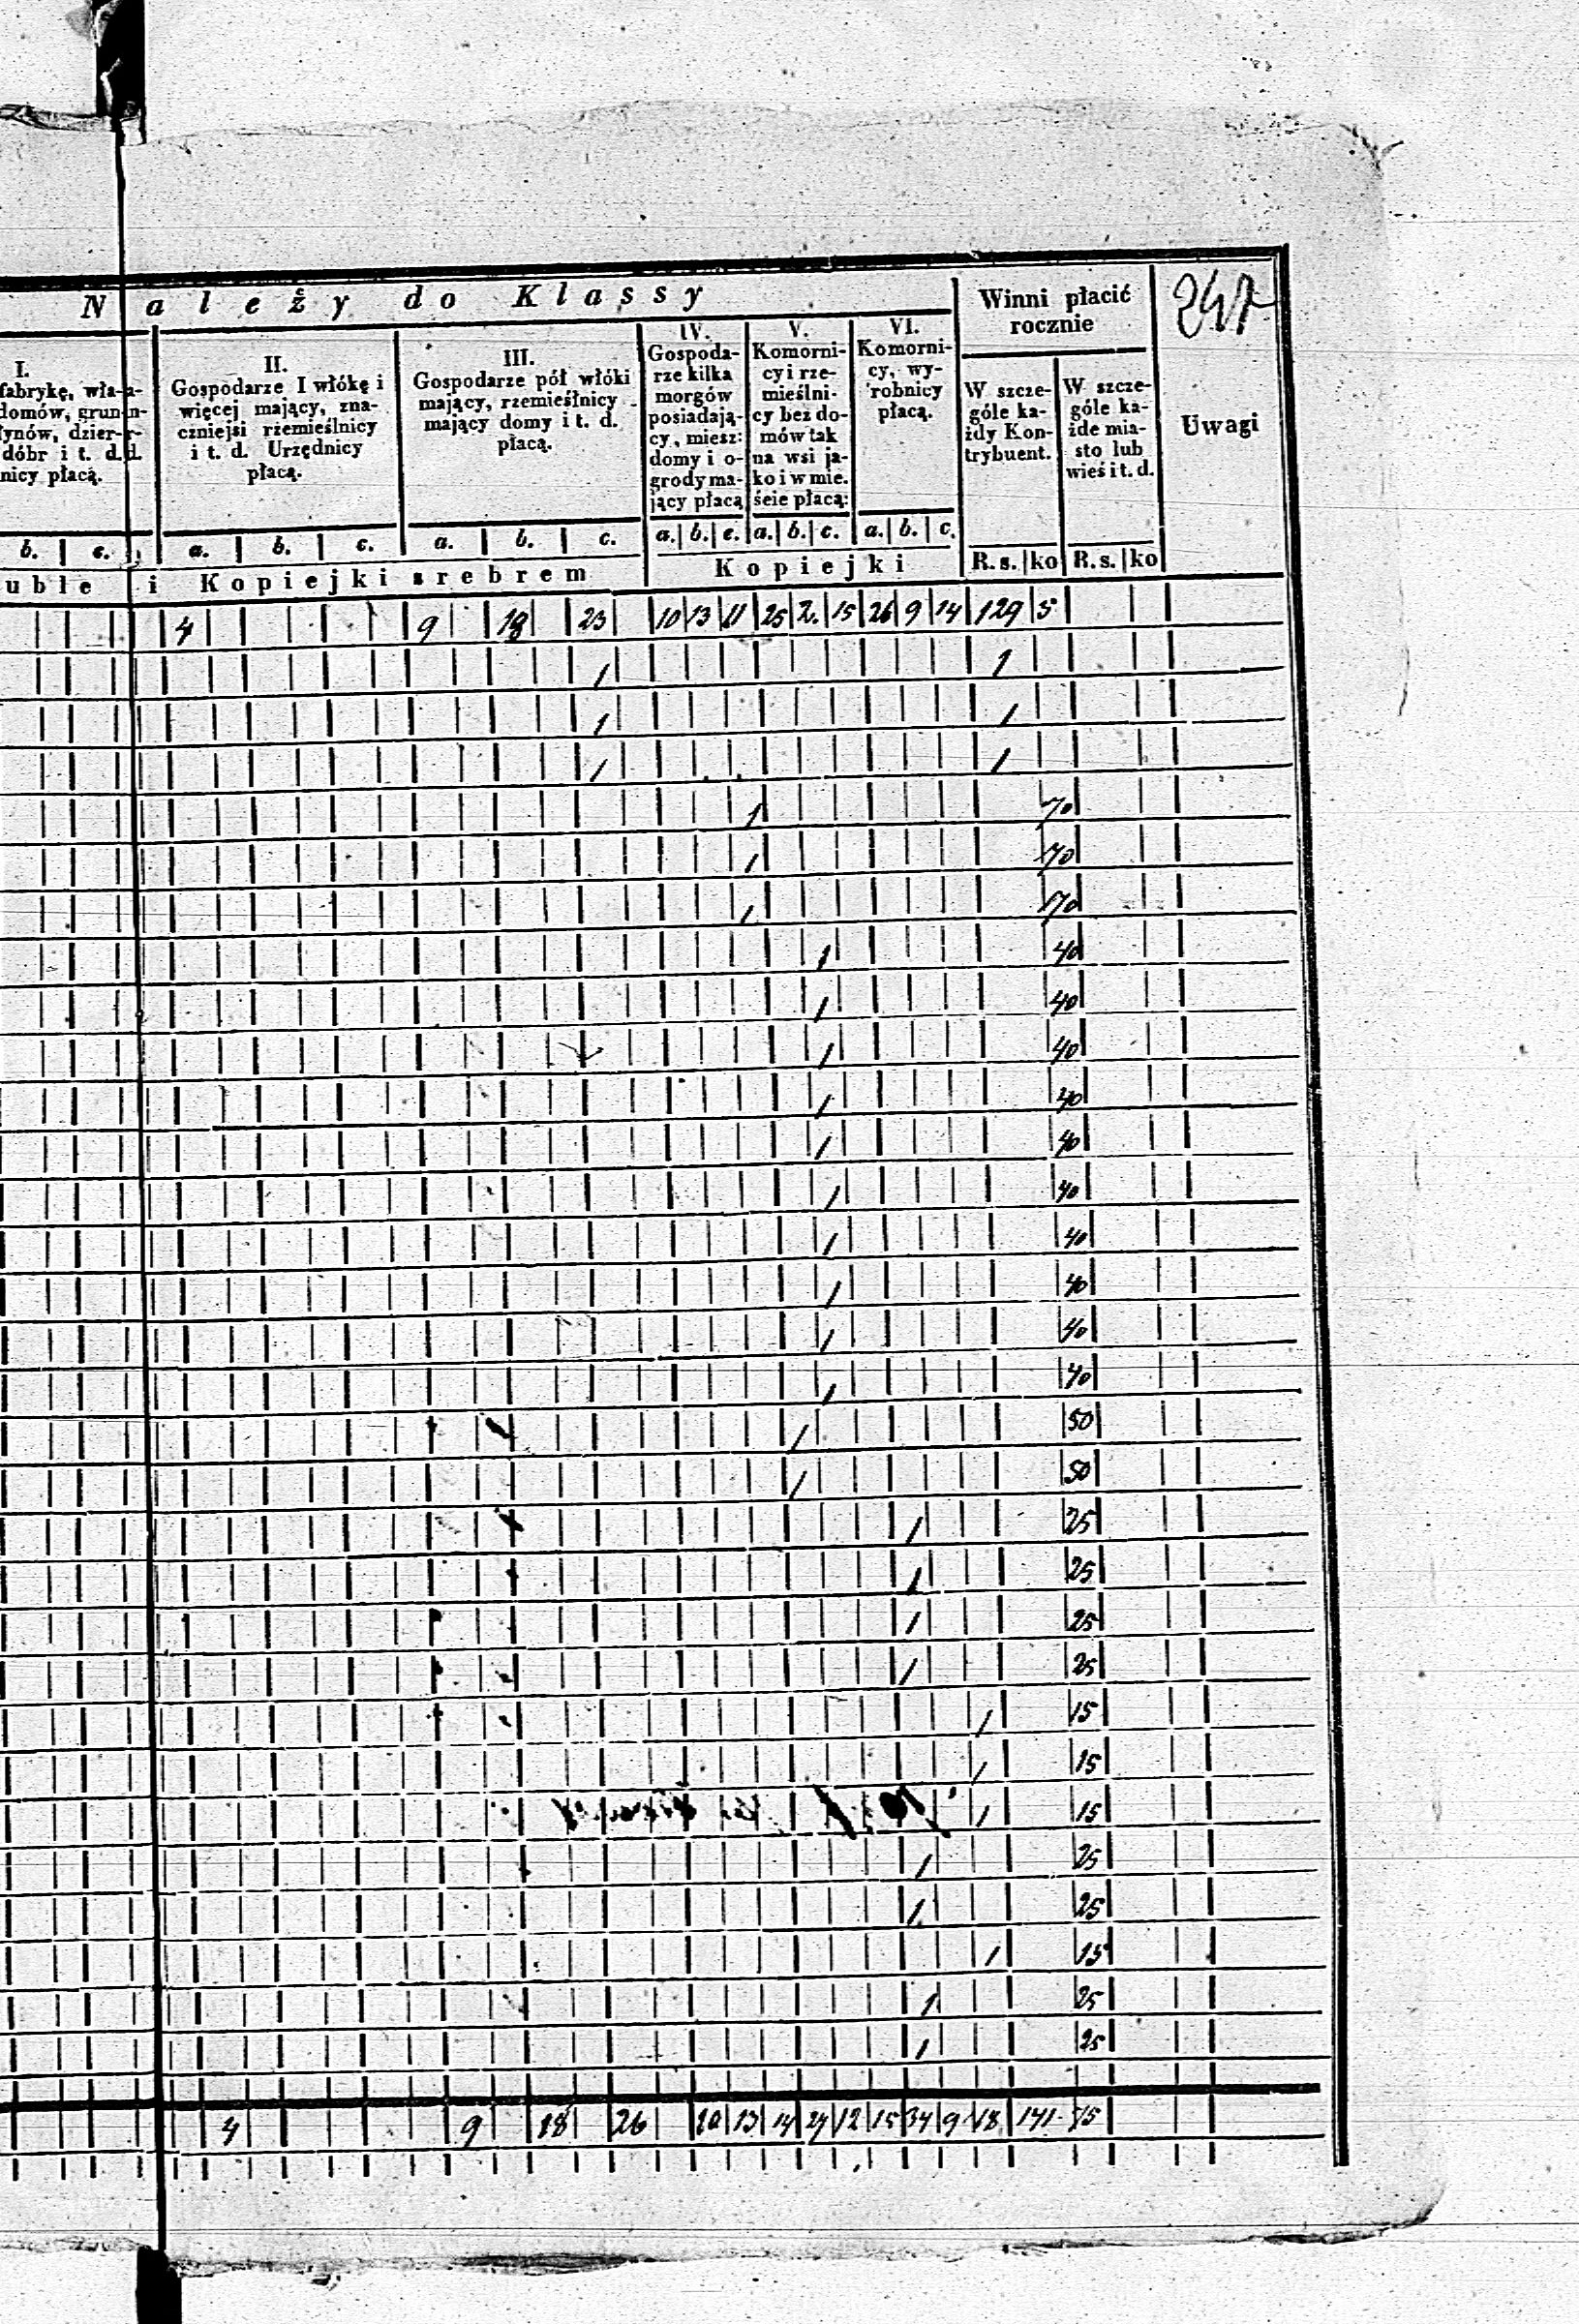 Należy do Klassy
Winni płacić
rocznie
247
I.
fabrykę, wła-
domów, grun-
łynów, dzier-
dóbr i t. d.
nicy płacą.
II.
Gospodarze I włókę i
więcej mający, zna-
czniejsi rzemieślnicy
i t. d. Urzędnicy
płacą.
III.
Gospodarze pół włóki
mający, rzemieślnicy
mający domy i t. d.
płacą.
IV.
Gospoda-
rze kilka
morgów
posiadają-
cy, miesz:
domy i o-
grody ma-
jący płacą
V.
Komorni-
cy i rze-
mieślni-
cy bez do-
mów tak
na wsi ja-
ko i w mie.
ście płacą:
VI.
Komorni-
cy, wy-
robnicy
płacą.
W szcze-
góle ka-
żdy Kon-
trybuent.
W szcze-
góle ka-
żde mia-
sto lub
wieś i t. d.
Uwagi
b. c. a. b. c. a. b. c. a. b. c. a. b. c. a. b. c.
uble i Kopiejki srebrem Kopiejki R. s. ko R. s. ko
4 9 18 23 10 13 11 25 2. 15 26 9 14 129 5
1 1
1 1
1 1
1 70
1 70
1 70
1 40
1 40
1 40
1 40
1 40
1 40
1 40
1 40
1 40
1 40
1 50
1 50
1 25
1 25
1 25
1 25
1 15
1 15
1 15
1 25
1 25
1 15
1 25
1 25
4 9 18 26 10 13 14 27 12 15 34 9 18 141 75